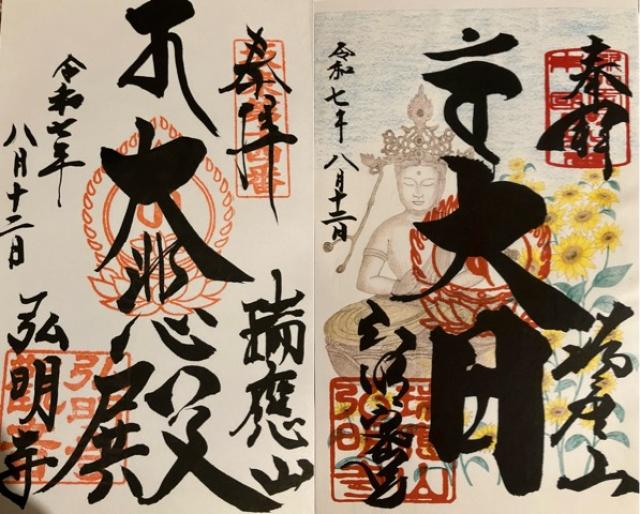 奉拝
坂東第十四番
瑞應山
大悲殿
令和七年
八月十二日
弘明寺
奉拝
瑞應山
大日
令和七年 八月十二日